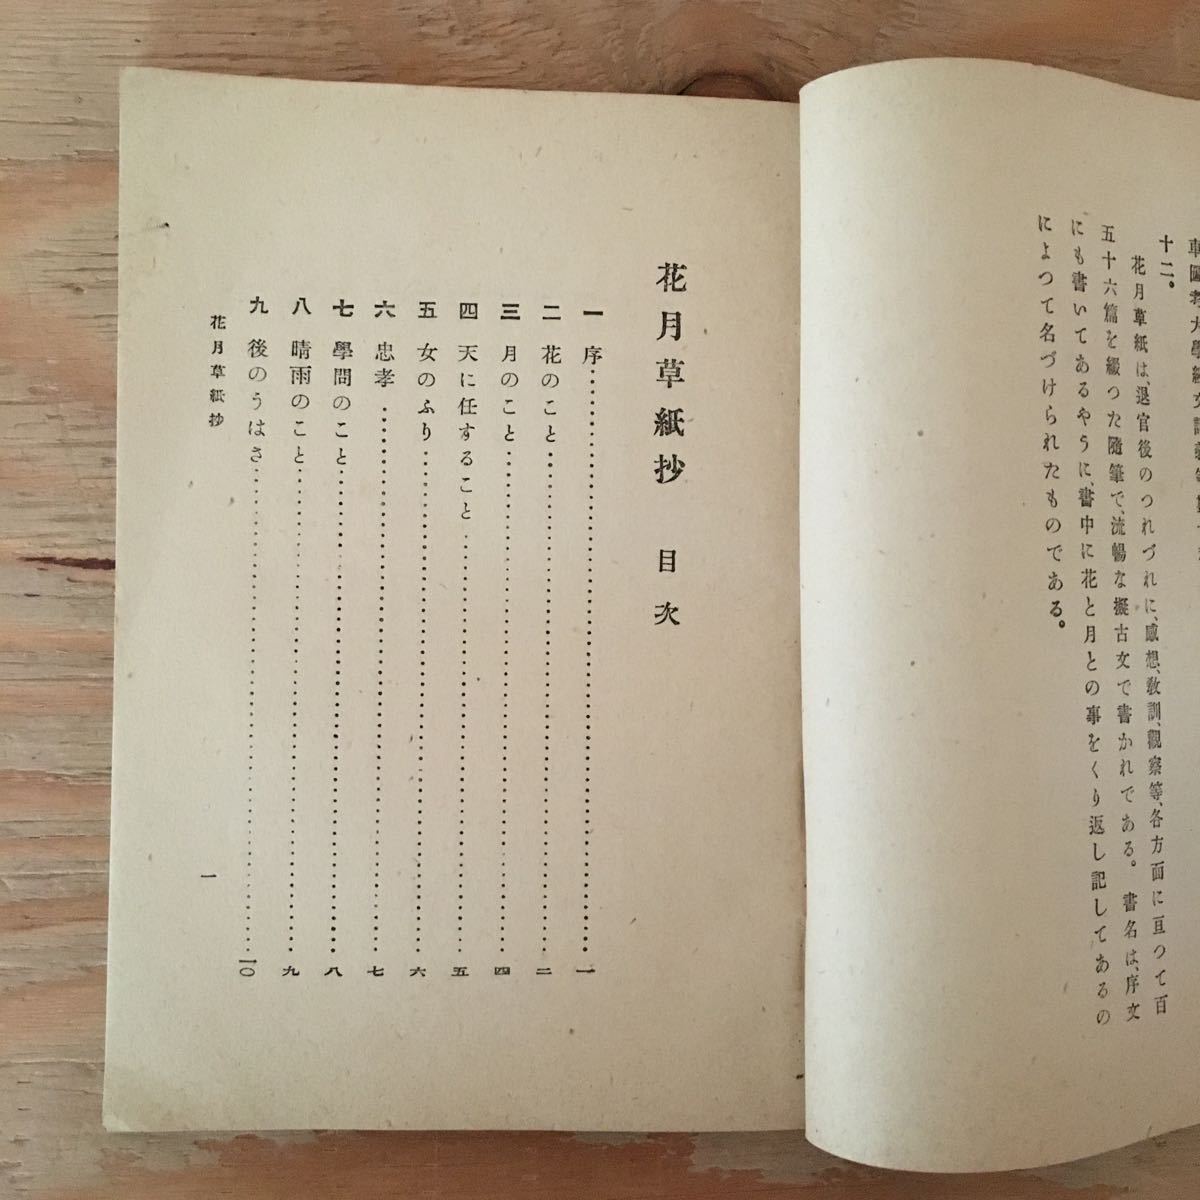 十二。
花月草紙は、退官後のつれづれに、感想、敎訓、觀察等、各方面に亘つて百
五十六篇を綴つた隨筆で、流暢な擬古文で書かれてある。書名は、序文
にも書いてあるやうに、書中に花と月との事をくり返し記してあるの
によつて名づけられたものである。
花月草紙抄 目次
一 序……一
二 花のこと……二
三 月のこと……四
四 天に任すること……五
五 女のふり……六
六 忠孝……七
七 學問のこと……八
八 晴雨のこと……九
九 後のうはさ……一〇
花月草紙抄 一